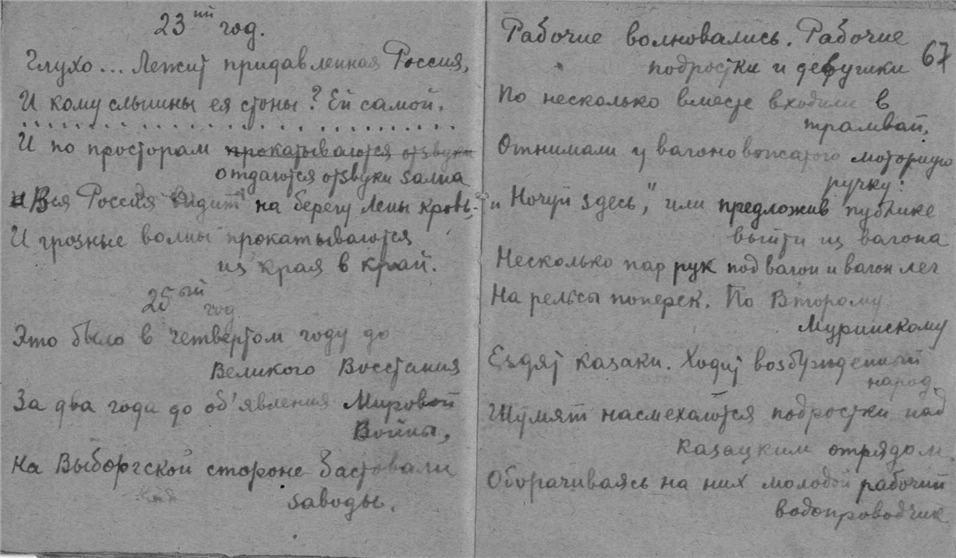 23ий год.
Глухо... Лежит придавленная Россия,
И кому слышны ея стоны? Ей самой.
..............................
И по просторам прокатываются отзвуки
отдаются отзвуки залпа
Вся Россия видит на берегу Лены кровь,
И грозные волны прокатываются
из края в край.
25ый
год
Это было в четвертом году до
Великого Восстания
За два года до об'явления Мировой
Войны,
На Выборгской стороне бастовали
заводы.
67
Рабочие волновались. Рабочие
подростки и девушки
По несколько вместе входили в
трамвай.
Отнимали у вагоновожатого моторную
ручку:
"Ночуй здесь", или предложив публике
выйти из вагона
Несколько пар рук под вагон и вагон лег
На рельсы поперек. По Второму
Муринскому
Ездят казаки. Ходит возбужденный
народ.
Шумят насмехаются подростки над
казацким отрядом.
Оборачиваясь на них молодой рабочий
водопроводчик